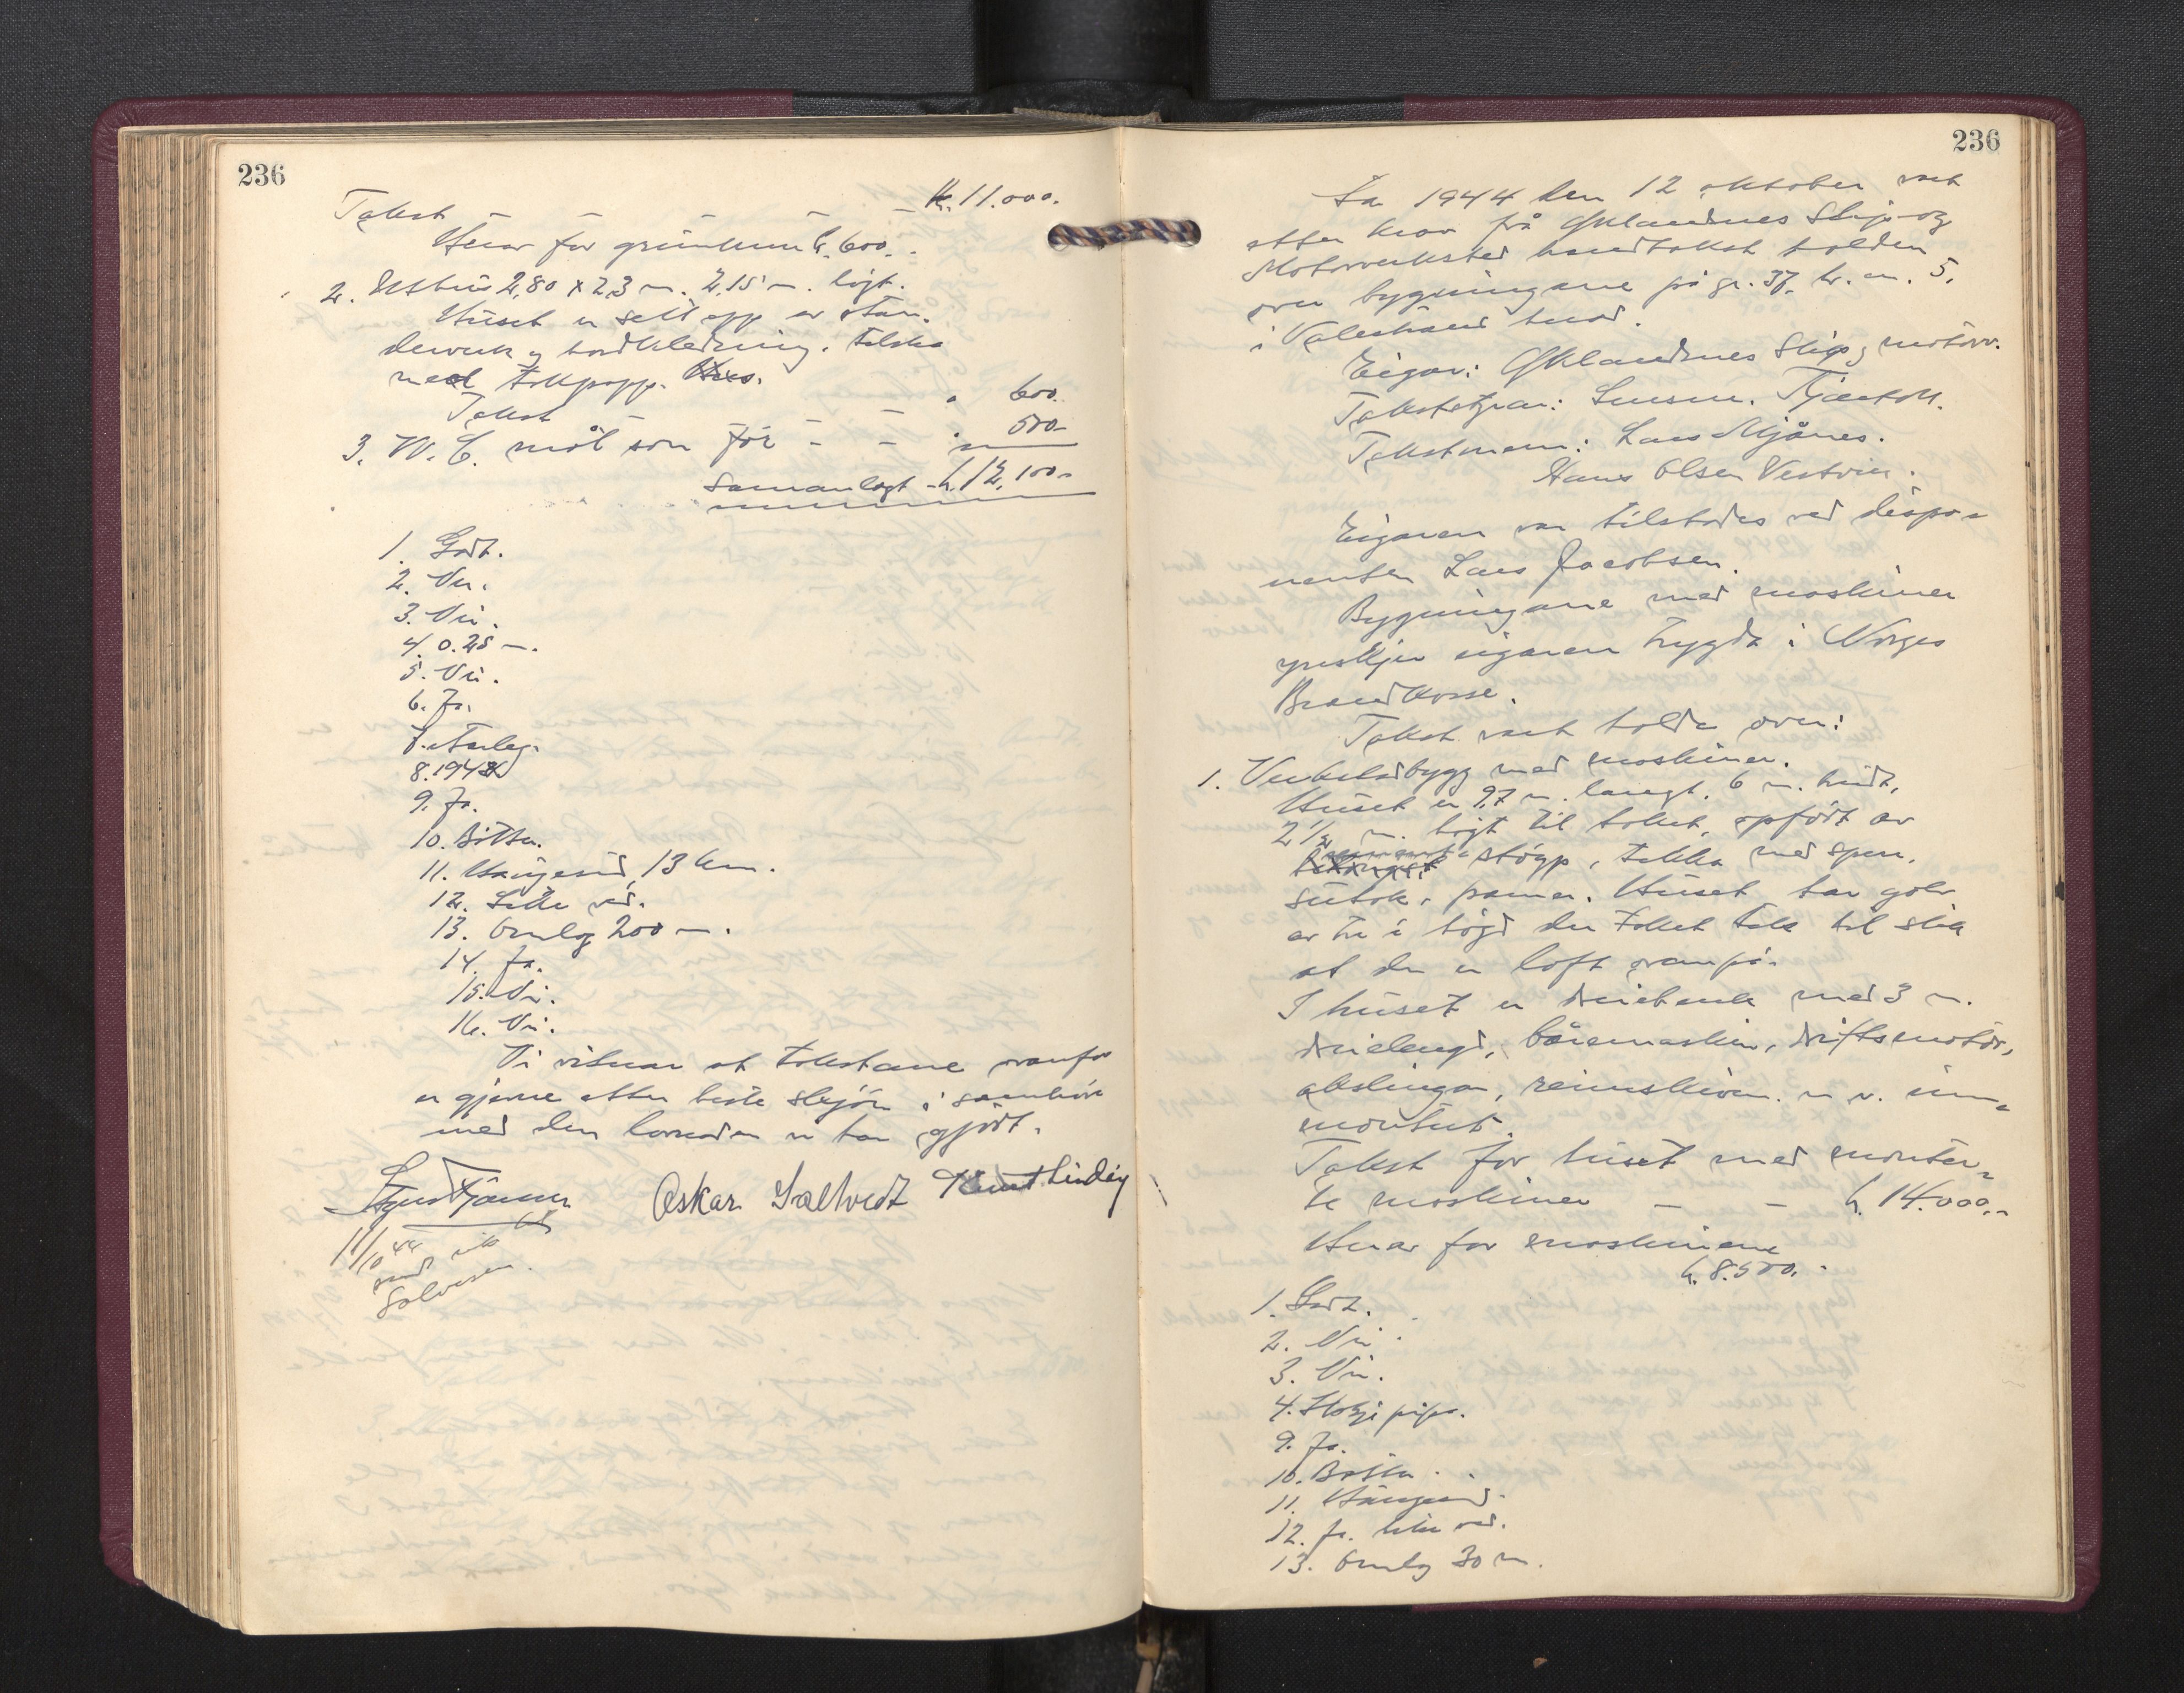 236
Takst – – – – – Kr. 11.000.
Herav for grunnmur kr. 600.-
2. Uthus 2,80 x 2,3 m. 2,15 m. høgt.
Huset er sett opp av stan-
derverk og bordkledning. Tekka
med takpapp.
Takst – – – " 600.
3. W. C. mål som før – – " 500.-
Samanlagt kr. 12.100.-
1. Godt.
2. Nei.
3. Nei.
4. 0.25 m.
5. Nei.
6. Ja.
7. Farleg.
8. 194
9. Ja.
10. Bøtter.
11. Haugesund, 13 km.
12. Like ved.
13. Omlag 200 m.
14. Ja.
15. Nei.
16. Nei.
Vi vitnar at takstane ovanfor
er gjevne etter beste skjøn i samhøve
med den lovnaden vi har gjort.
Oskar Saltvedt Knut Lindøy
11/10 44
send
236
År 1944 den 12 oktober vart
etter krav frå Øklandnes Slip- og
Motorverksted brandtakst halden
over bygningane på gr. 37, br. nr. 5,
i Valestrand herad.
Eigar: Øklandnes Slip og motorv.
Takststyrar: Lensm. Tjæntoft.
Takstmenn: Lars Mjånes.
Hans Olsen Vestvik.
Eigaren var tilstades ved dispo-
nenten Lars Jacobsen.
Bygningane med maskiner
ynskjer eigaren trygda i Norges
Brandkasse.
Takst vart halde over:
1. Verkstedbygg med maskiner.
Huset er 9,7 m. langt, 6 m. bredt,
2 1/2 m. høgt til taket, oppført av
sement støyp, tekka med sperr,
sutak, panner. Huset har golv
av tre i høgd der taket tek til slik
at der er loft ovanpå.
I huset er dreiebenk med 3 m.
dreielengd, boremaskin, driftsmotor,
akslingar, reimskiver m. v. inn-
montert.
Takst for huset med monter-
te maskiner – – kr. 14.000.-
Herav for maskinene
kr. 8.500.-
1. Godt.
2. Nei.
3. Nei.
4. Ikkje pipe.
9. Ja.
10. Bøtter.
11. Haugesund.
12. Ja. like ved.
13. Omlag 30 m.